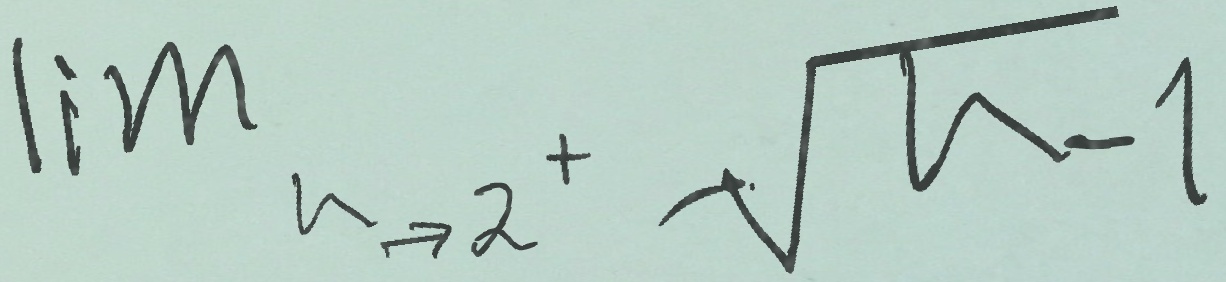 \lim_{h \to 2^+} \sqrt{h-1}